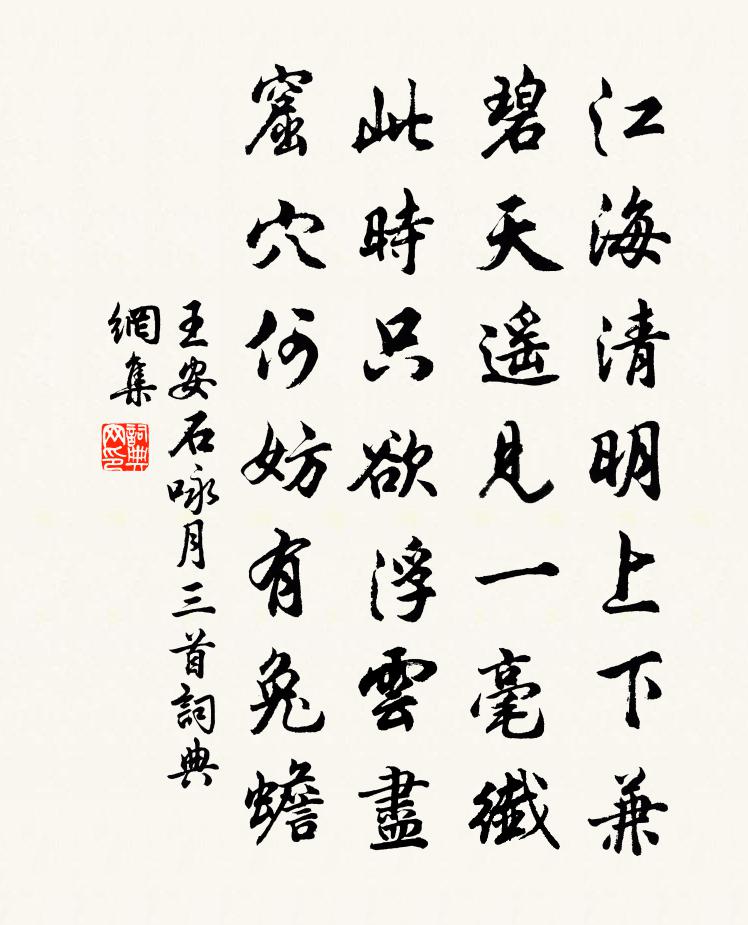 江海清明上下兼
碧天遙見一毫纖
此時只欲浮雲盡
窟穴何妨有兔蟾
王安石咏月三首詞典
網集
詞典
网印